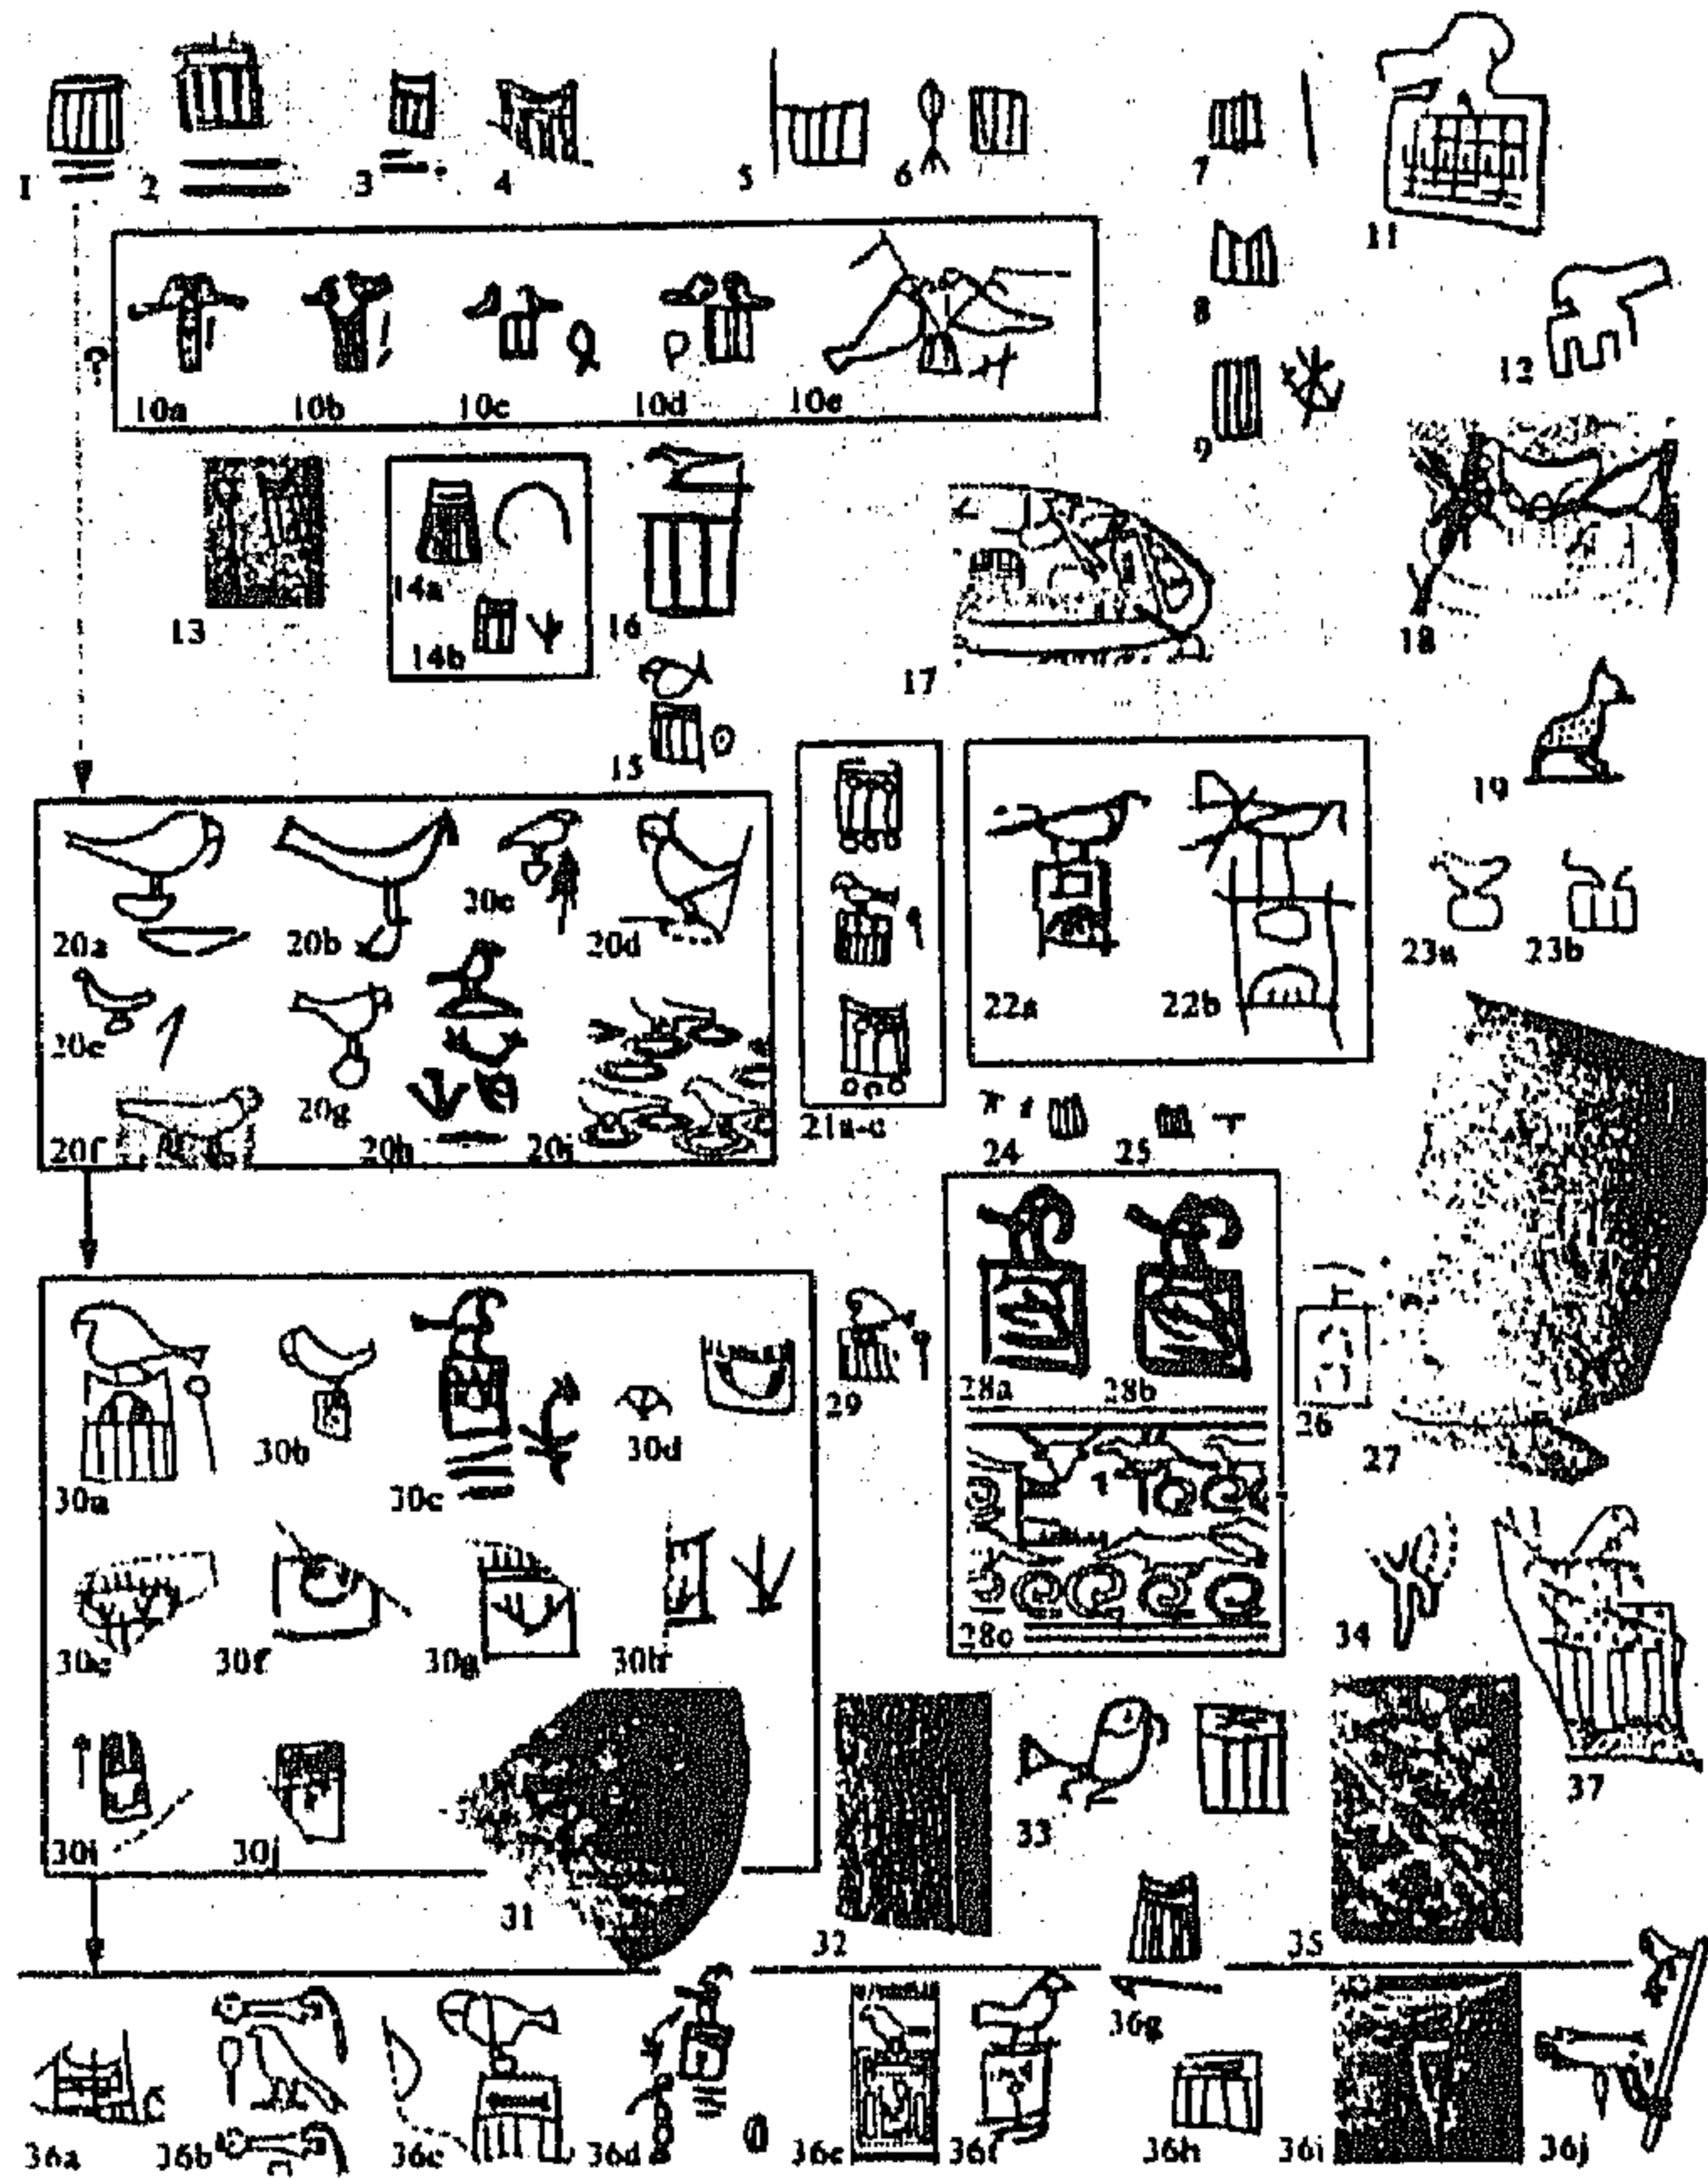 1 2 3 4 5 6 7 11
8
10a 10b 10c 10d 10e 12
9
13 14a 14b 16 17 18
15 19
20a 20b 20c 20d 22a 22b 23a 23b
20e
20f 20g 20h 20i 21a-c 24 25
30a 30b 30c 30d 29 28a 28b 26 27
30e 30f 30g 30h 28c 34
30i 30j 31 32 33 35 37
36a 36b 36c 36d 36e 36f 36g 36h 36i 36j